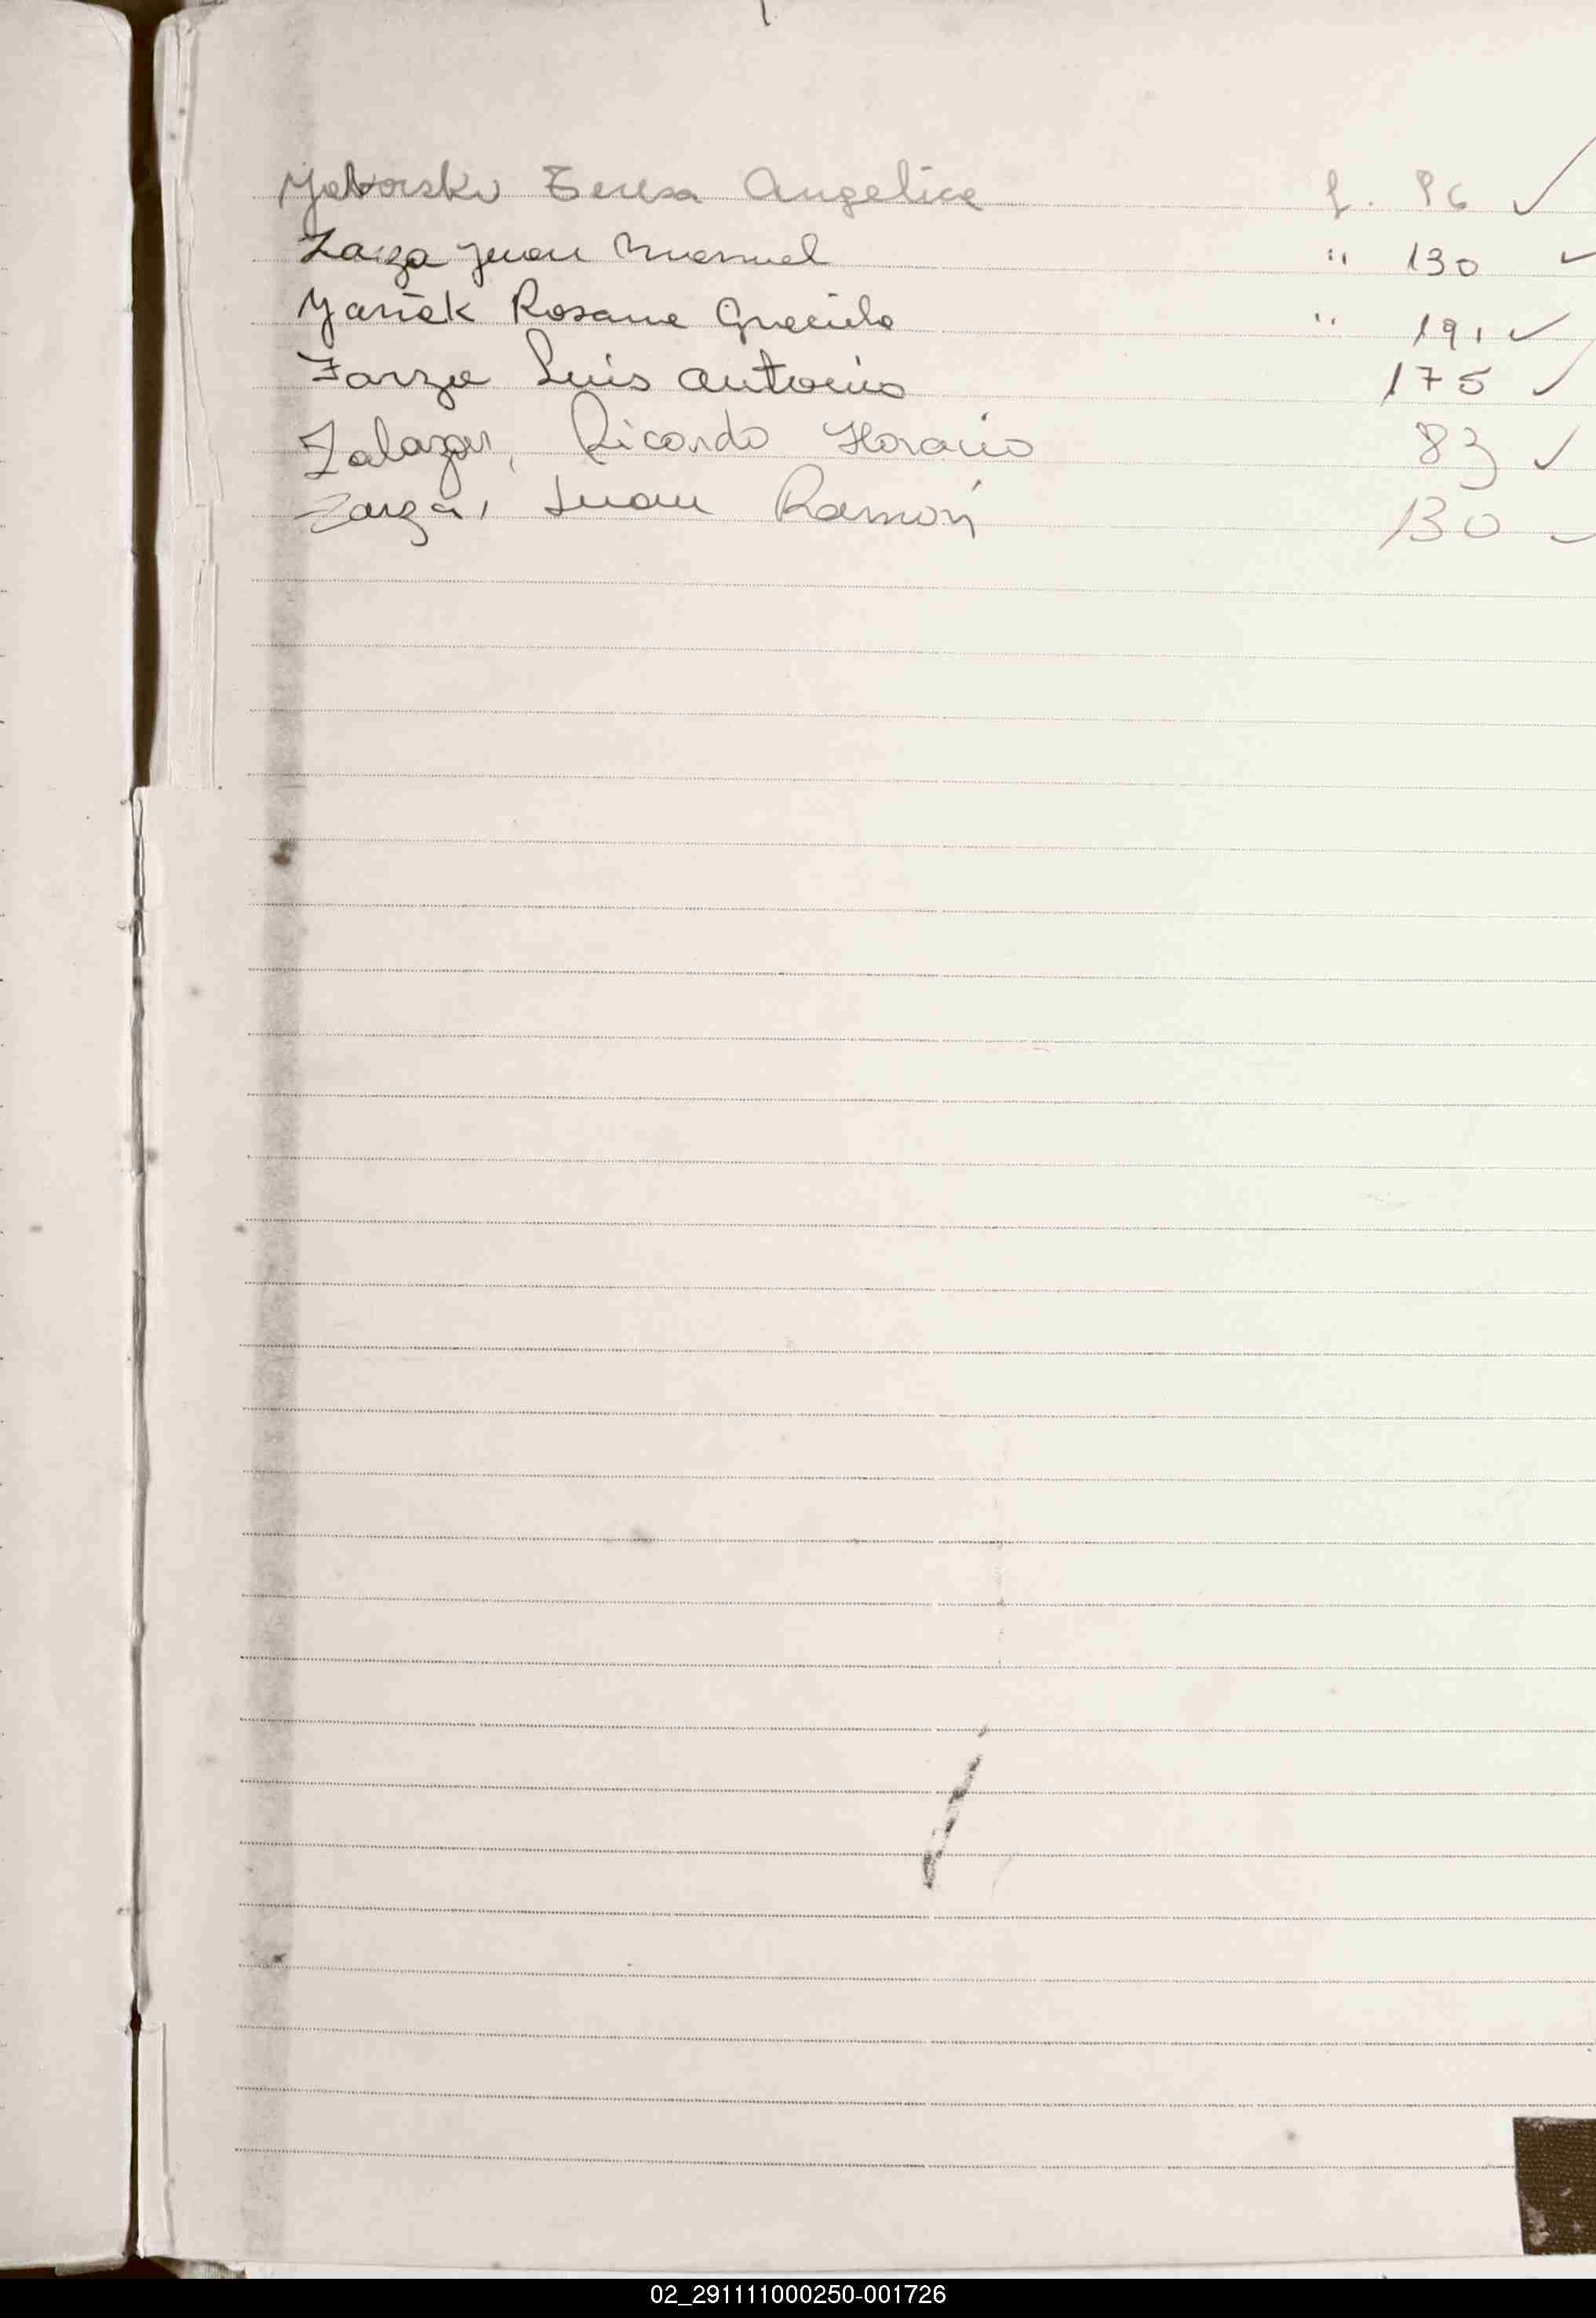 Yaborski Teresa Angelica f. 96 ✓
Zarza Juan Manuel " 130 ✓
Yariek Rosana Graciela " 191 ✓
Zarza Luis Antonio 175 ✓
Zalazar, Ricardo Horacio 83 ✓
Zarza, Juan Ramón 130 ✓
02_291111000250-001726